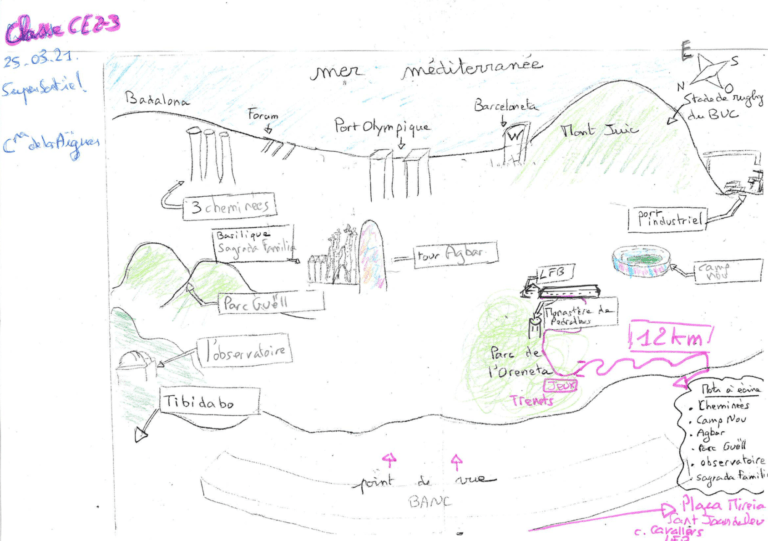 Classe CE2-3
25.03.21
Cra de les Aïgues
mer méditerranée
E
S
N
O
Badalona
Forum
Port Olympique
Barceloneta
W
Mont Juic
Stade de rugby
du BUC
3 cheminées
port
industriel
Basilique
Sagrada Familia
tour Agbar
camp
nou
LFB
Parc Guëll
Monastère de
Pedralbes
l'observatoire
Parc de
l'Oreneta
12km
JEUX
Trenets
Tibidabo
Mots à écrire
• Cheminées
• Camp Nou
• Agbar
• Parc Guëll
• observatoire
• sagrada famili
point de vue
BANC
Plaça Mireia
Sant Joan de Deu
c. Cavallers
LFB